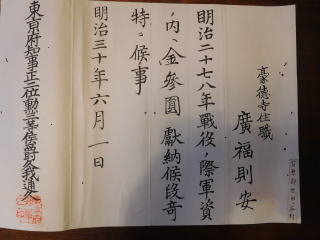 豪德寺住職
廣福則安
明治二十七八年戰役ノ際軍資
ノ內ヘ金參圓獻納候段奇
特ニ候事
明治三十年六月一日
東京府知事正三位勳三等侯爵久我通久